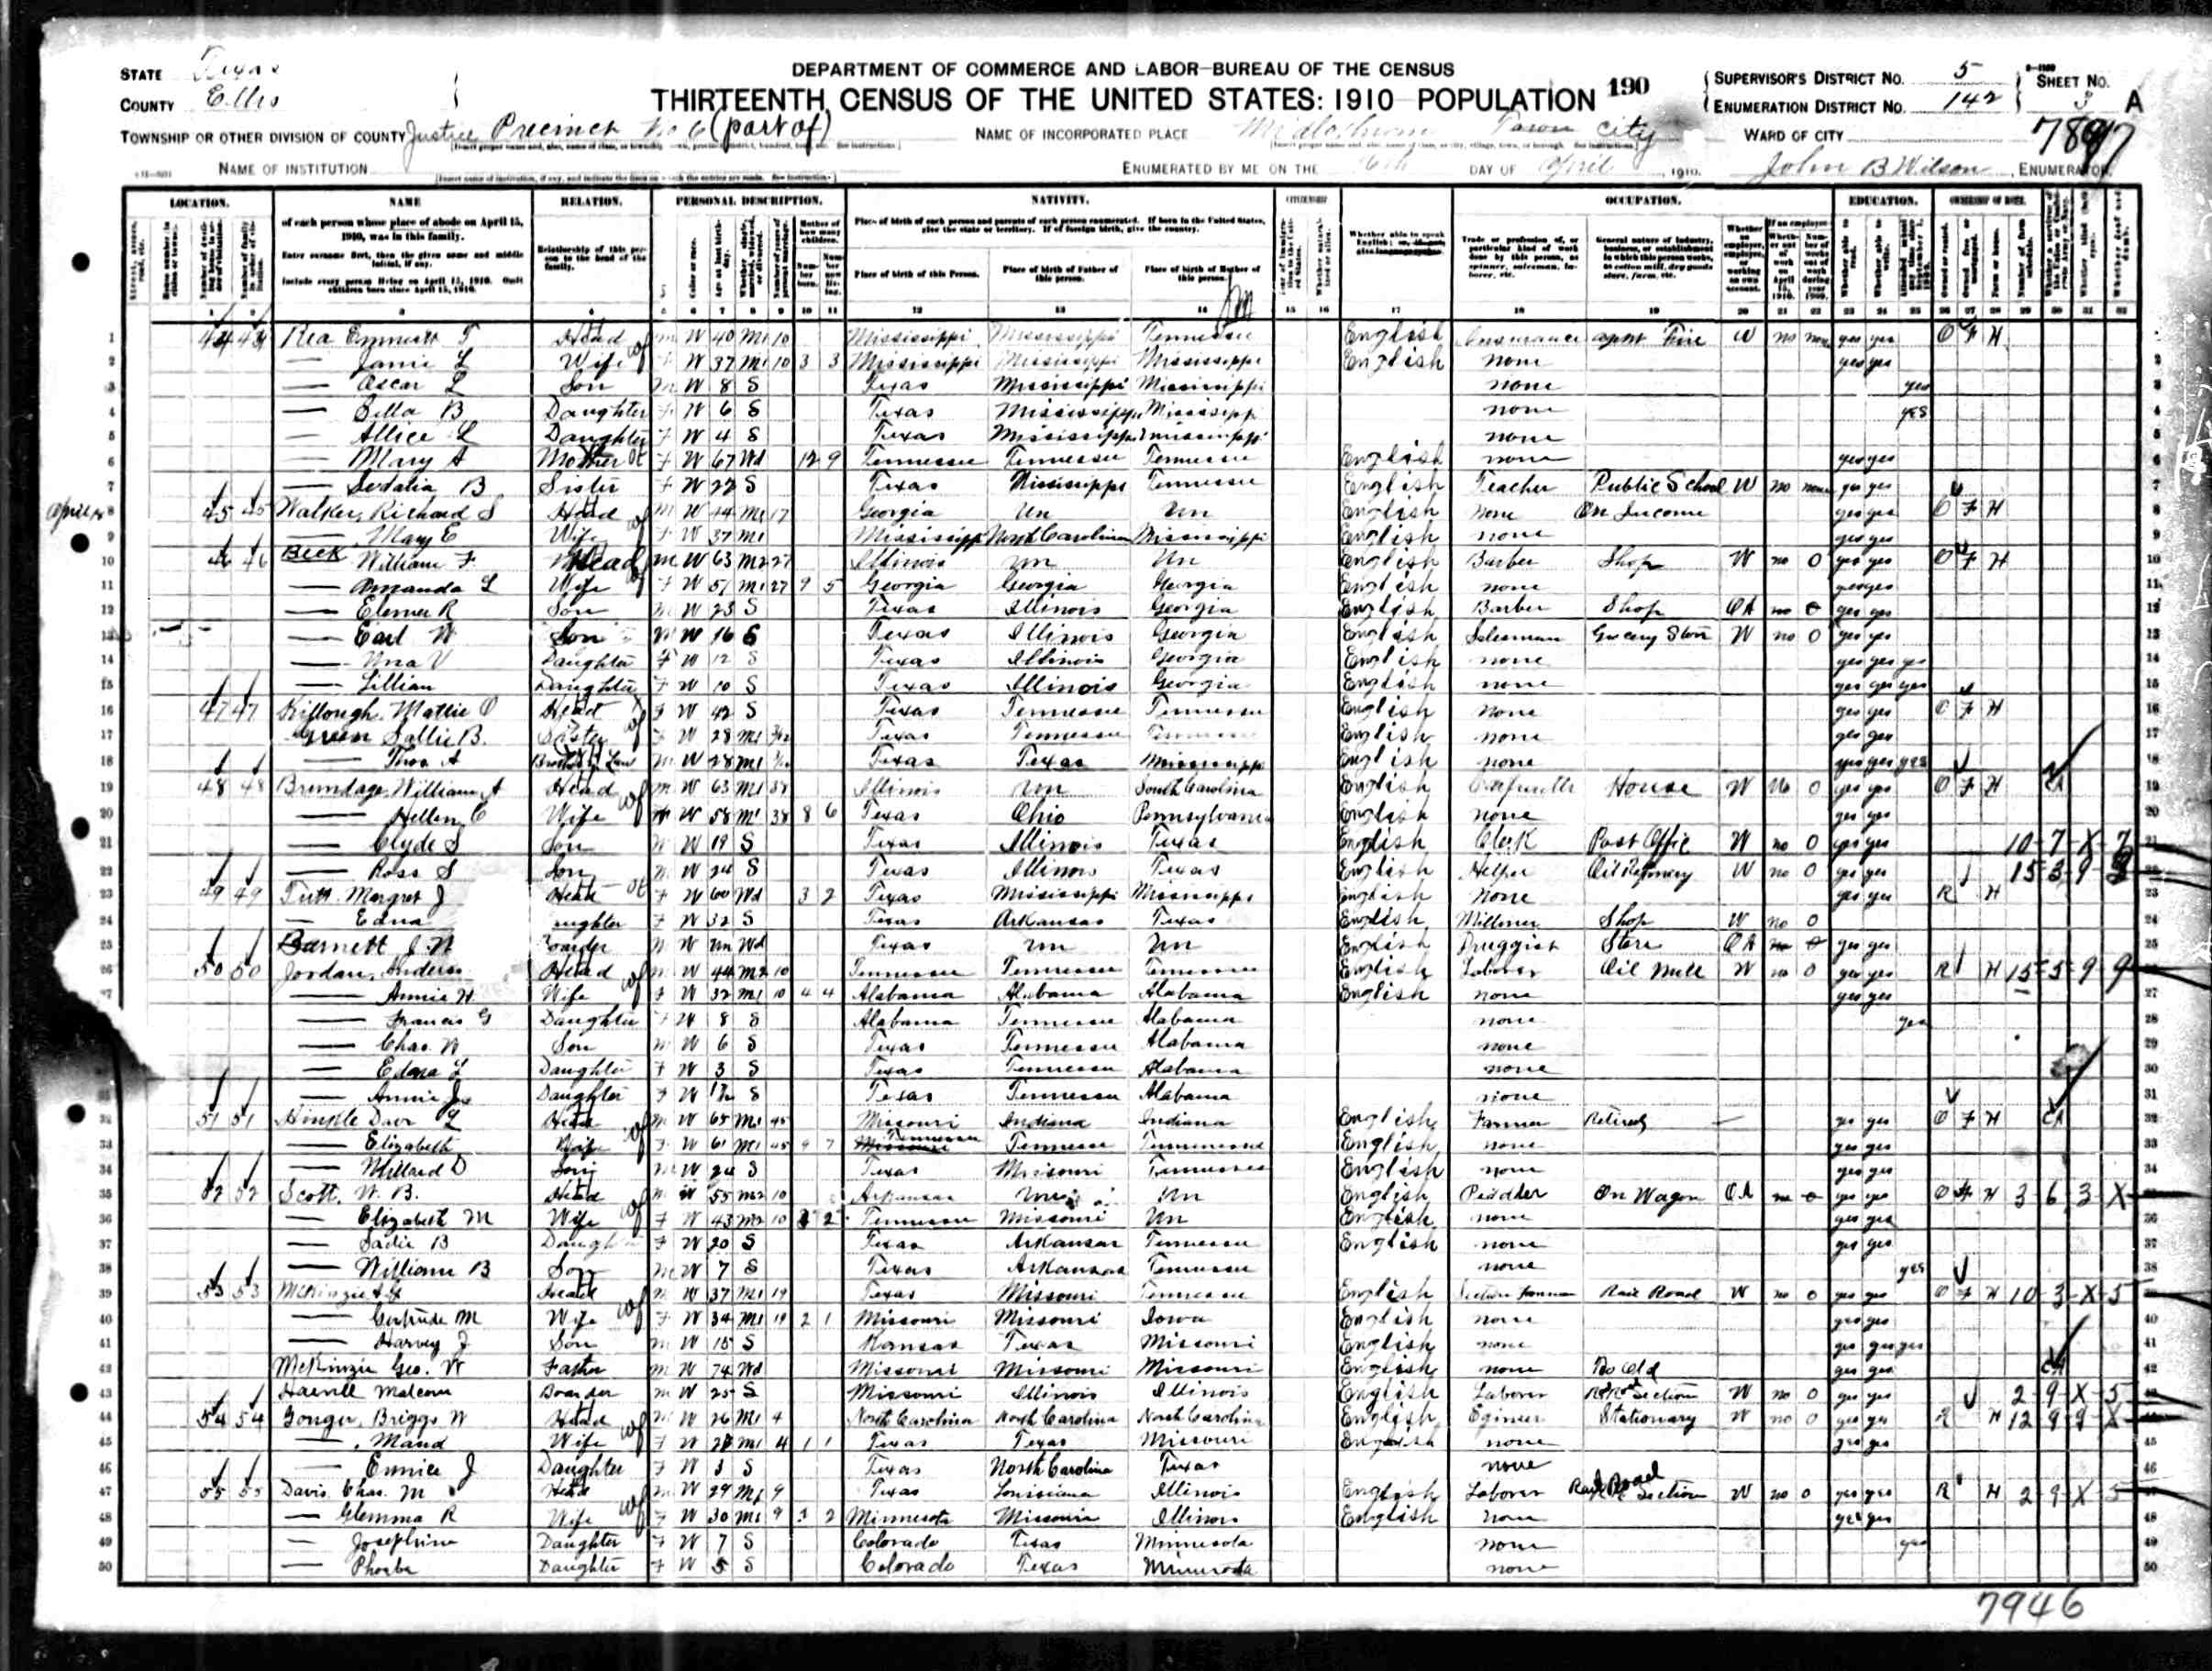 DEPARTMENT OF COMMERCE AND LABOR-BUREAU OF THE CENSUS
THIRTEENTH CENSUS OF THE UNITED STATES: 1910 POPULATION 190
STATE Texas
COUNTY Ellis
TOWNSHIP OR OTHER DIVISION OF COUNTY Justice Precinct No 6 (part of)
NAME OF INSTITUTION
NAME OF INCORPORATED PLACE Midlothian Town city
ENUMERATED BY ME ON THE 6th DAY OF April, 1910.
SUPERVISOR'S DISTRICT No. 5
ENUMERATION DISTRICT No. 142
SHEET No. 3 A
WARD OF CITY
John B Wilson, ENUMERATOR.
LOCATION. NAME RELATION. PERSONAL DESCRIPTION. NATIVITY. CITIZENSHIP OCCUPATION. EDUCATION. OWNERSHIP OF HOME.
of each person whose place of abode on April 15, 1910, was in this family.
Enter surname first, then the given name and middle initial, if any.
Include every person living on April 15, 1910. Omit children born since April 15, 1910.
Relationship of this person to the head of the family.
Place of birth of this Person. Place of birth of Father of this person. Place of birth of Mother of this person.
1 44 44 Rea Emmett F Head m W 40 M1 10 Mississippi Mississippi Tennessee English Insurance agent Fire W no none yes yes O F H
2 — Janie L Wife F W 37 M1 10 3 3 Mississippi Mississippi Mississippi English none yes yes
3 — Oscar L Son m W 8 S Texas Mississippi Mississippi none yes
4 — B Daughter F W 6 S Texas Mississippi Mississippi none yes
5 — Allice L Daughter F W 4 S Texas Mississippi Mississippi none
6 — Mary A Mother F W 67 Wd 12 9 Tennessee Tennessee Tennessee English none yes yes
7 — Sedalia B Sister F W 22 S Texas Mississippi Tennessee English Teacher Public School W no none yes yes
8 45 45 Walker, Richard S Head m W 44 M1 17 Georgia Un Un English None On Income yes yes O F H
9 — Mary E Wife F W 37 M1 Mississippi North Carolina Mississippi English none yes yes
10 46 46 Beck William F Head m W 63 M2 27 Illinois Un Un English Barber Shop W no 0 yes yes O F H
11 — Amanda L Wife F W 51 M1 27 9 5 Georgia Georgia Georgia English none yes yes
12 — Elemer R Son m W 23 S Texas Illinois Georgia English Barber Shop OA no 0 yes yes
13 — Earl W Son m W 16 S Texas Illinois Georgia English Salesman Grocery Store W no 0 yes yes
14 — V Daughter F W 12 S Texas Illinois Georgia English none yes yes yes
15 — Lillian Daughter F W 10 S Texas Illinois Georgia English none yes yes yes
16 47 47 Killough, Mattie O Head F W 42 S Texas Tennessee Tennessee English None yes yes O F H
17 Green Sallie B. Sister F W 28 M1 Texas Tennessee Tennessee English none yes yes
18 — Thos A Brother in Law m W 28 M1 Texas Texas Mississippi English none yes yes yes
19 48 48 Brundage, William A Head m W 63 M1 38 Illinois Un South Carolina English Carpenter House W No 0 yes yes O F H CA
20 — Hellen C Wife F W 58 M1 38 8 6 Texas Ohio Pennsylvania English none yes yes
21 — Clyde S Son m W 19 S Texas Illinois Texas English Clerk Post Office W no 0 yes yes 10-7-X-7
22 — Ross S Son m W 24 S Texas Illinois Texas English Helper Oil Refinery W no 0 yes yes 15-3-9
23 49 49 Margret J Head F W 60 Wd 3 2 Texas Mississippi Mississippi English None yes yes R H
24 — Edna Daughter F W 32 S Texas Arkansas Texas English Milliner Shop W no 0
25 Barnett J. W Boarder m W Un Wd Texas Un Un English Druggist Store OA no 0 yes yes
26 50 50 Jordan, Anderson Head m W 44 M2 10 Tennessee Tennessee Tennessee English Laborer Oil Mill W no 0 yes yes R H 15-5-9 9
27 — Annie H. Wife F W 32 M1 10 4 4 Alabama Alabama Alabama English none yes yes
28 — Francis G Daughter F W 8 S Alabama Tennessee Alabama none yes
29 — Chas. W Son m W 6 S Texas Tennessee Alabama none
30 — Edna L Daughter F W 3 S Texas Tennessee Alabama none
31 — Annie Daughter F W S Texas Tennessee Alabama none
32 51 51 Hinkle Head m W 65 M1 45 Missouri Indiana Indiana English Farmer Retired yes yes O F H CA
33 — Elizabeth Wife F W 61 M1 45 9 7 Tennessee Tennessee Tennessee English none yes yes
34 — Millard D Son m W 24 S Texas Missouri Tennessee English none yes yes
35 52 52 Scott, W. B. Head m W 55 M2 10 Arkansas Un Un English Peddler On Wagon OA no 0 yes yes O F H 3-6-3 X
36 — Elizabeth M Wife F W 43 M2 10 2 Tennessee Missouri Un English none yes yes
37 — Sadie B Daughter F W 20 S Texas Arkansas Tennessee English none yes yes
38 — William B Son m W 7 S Texas Arkansas Tennessee none yes
39 53 53 McKinzie Head m W 37 M1 19 Texas Missouri Tennessee English Section Forman Rail Road W no 0 yes yes O F H 10-3-X-5
40 — Gertrude M Wife F W 34 M1 19 2 1 Missouri Missouri Iowa English none yes yes
41 — Harvey J Son m W 15 S Kansas Texas Missouri English none yes yes yes
42 McKinzie Geo. W Father m W 74 Wd Missouri Missouri Missouri English none To Old yes yes CA
43 Malcom Boarder m W 25 S Missouri Illinois Illinois English Laborer RR Section W no 0 yes yes 2-9-X-5
44 54 54 Briggs W Head m W 26 M1 4 North Carolina North Carolina North Carolina English Egineer Stationary W no 0 yes yes R H 12 9-9-X
45 —, Maud Wife F W M1 4 1 1 Texas Texas Missouri English none yes yes
46 — Eunice J Daughter F W 3 S Texas North Carolina Texas none
47 55 55 Davis. Chas. M Head m W 29 M1 9 Texas Louisiana Illinois English Laborer Rail Road Section W no 0 yes yes R H 2-9-X-5
48 — Glemma R Wife F W 30 M1 9 3 2 Minnesota Missouri Illinois English none yes yes
49 — Josephine Daughter F W 7 S Colorado Texas Minnesota none yes
50 — Phoebe Daughter F W 5 S Colorado Texas Minnesota none
7946